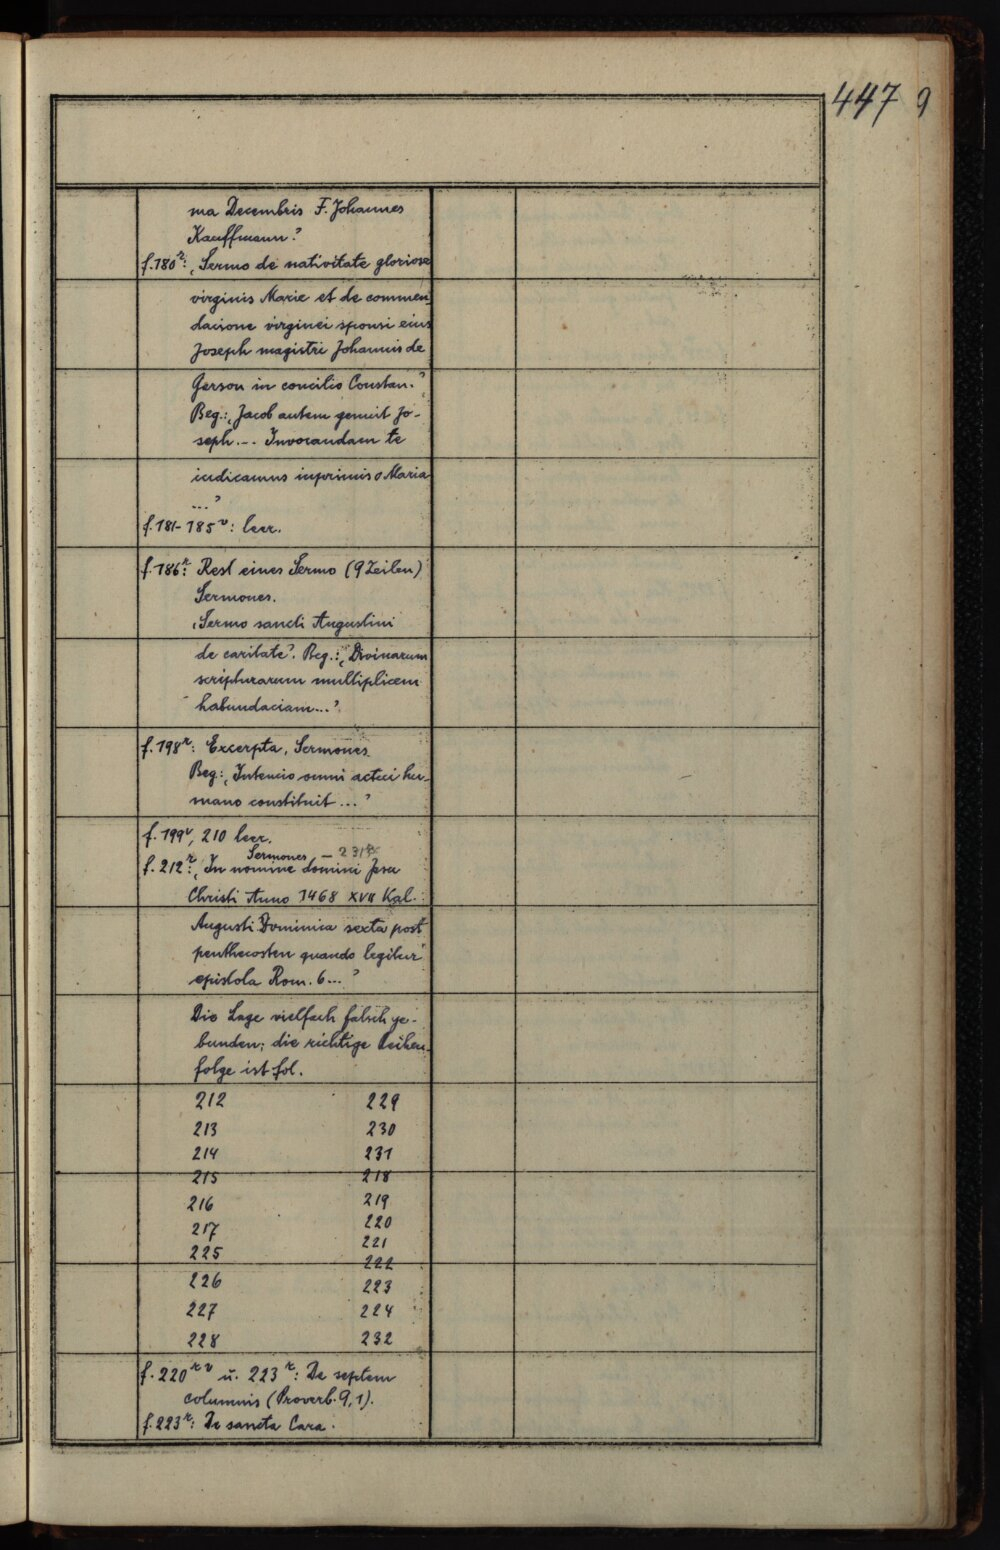 447 9
ma Decembris F. Johannes
Kauffmann?
f. 180r: ‚Sermo de nativitate gloriose
virginis Marie et de commen-
dacione virginei sponsi eius
Joseph magistri Johannis de
Gerson in concilio Constan.‘
Beg.: ‚Jacob autem genuit Jo-
seph... Invocandam te
iudicamus inprimis o Maria
...‘
f. 181-185v: leer.
f. 186r: Rest eines Sermo (9 Zeilen)
Sermones.
‚Sermo sancti Augustini
de caritate‘. Beg.: ‚Divinarum
scripturarum multiplicem
habundaciam...‘
f. 198r: Excerpta, Sermones
Beg.: ‚Intencio omni actui hu-
mano constituit ...‘
f. 199v, 210 leer.
Sermones – 231r
f. 212r: ‚In nomine domini Jesu
Christi Anno 1468 XVII Kal.
Augusti Dominica sexta post
penthecosten quando legitur
epistola Rom. 6...‘
Die Lage vielfach falsch ge-
bunden; die richtige Reihen-
folge ist fol.
212 229
213 230
214 231
215 218
216 219
217 220
225 221
222
226 223
227 224
228 232
f. 220r v u. 223r: De septem
columnis (Proverb. 9, 1).
f. 223r: De sancta Cara.